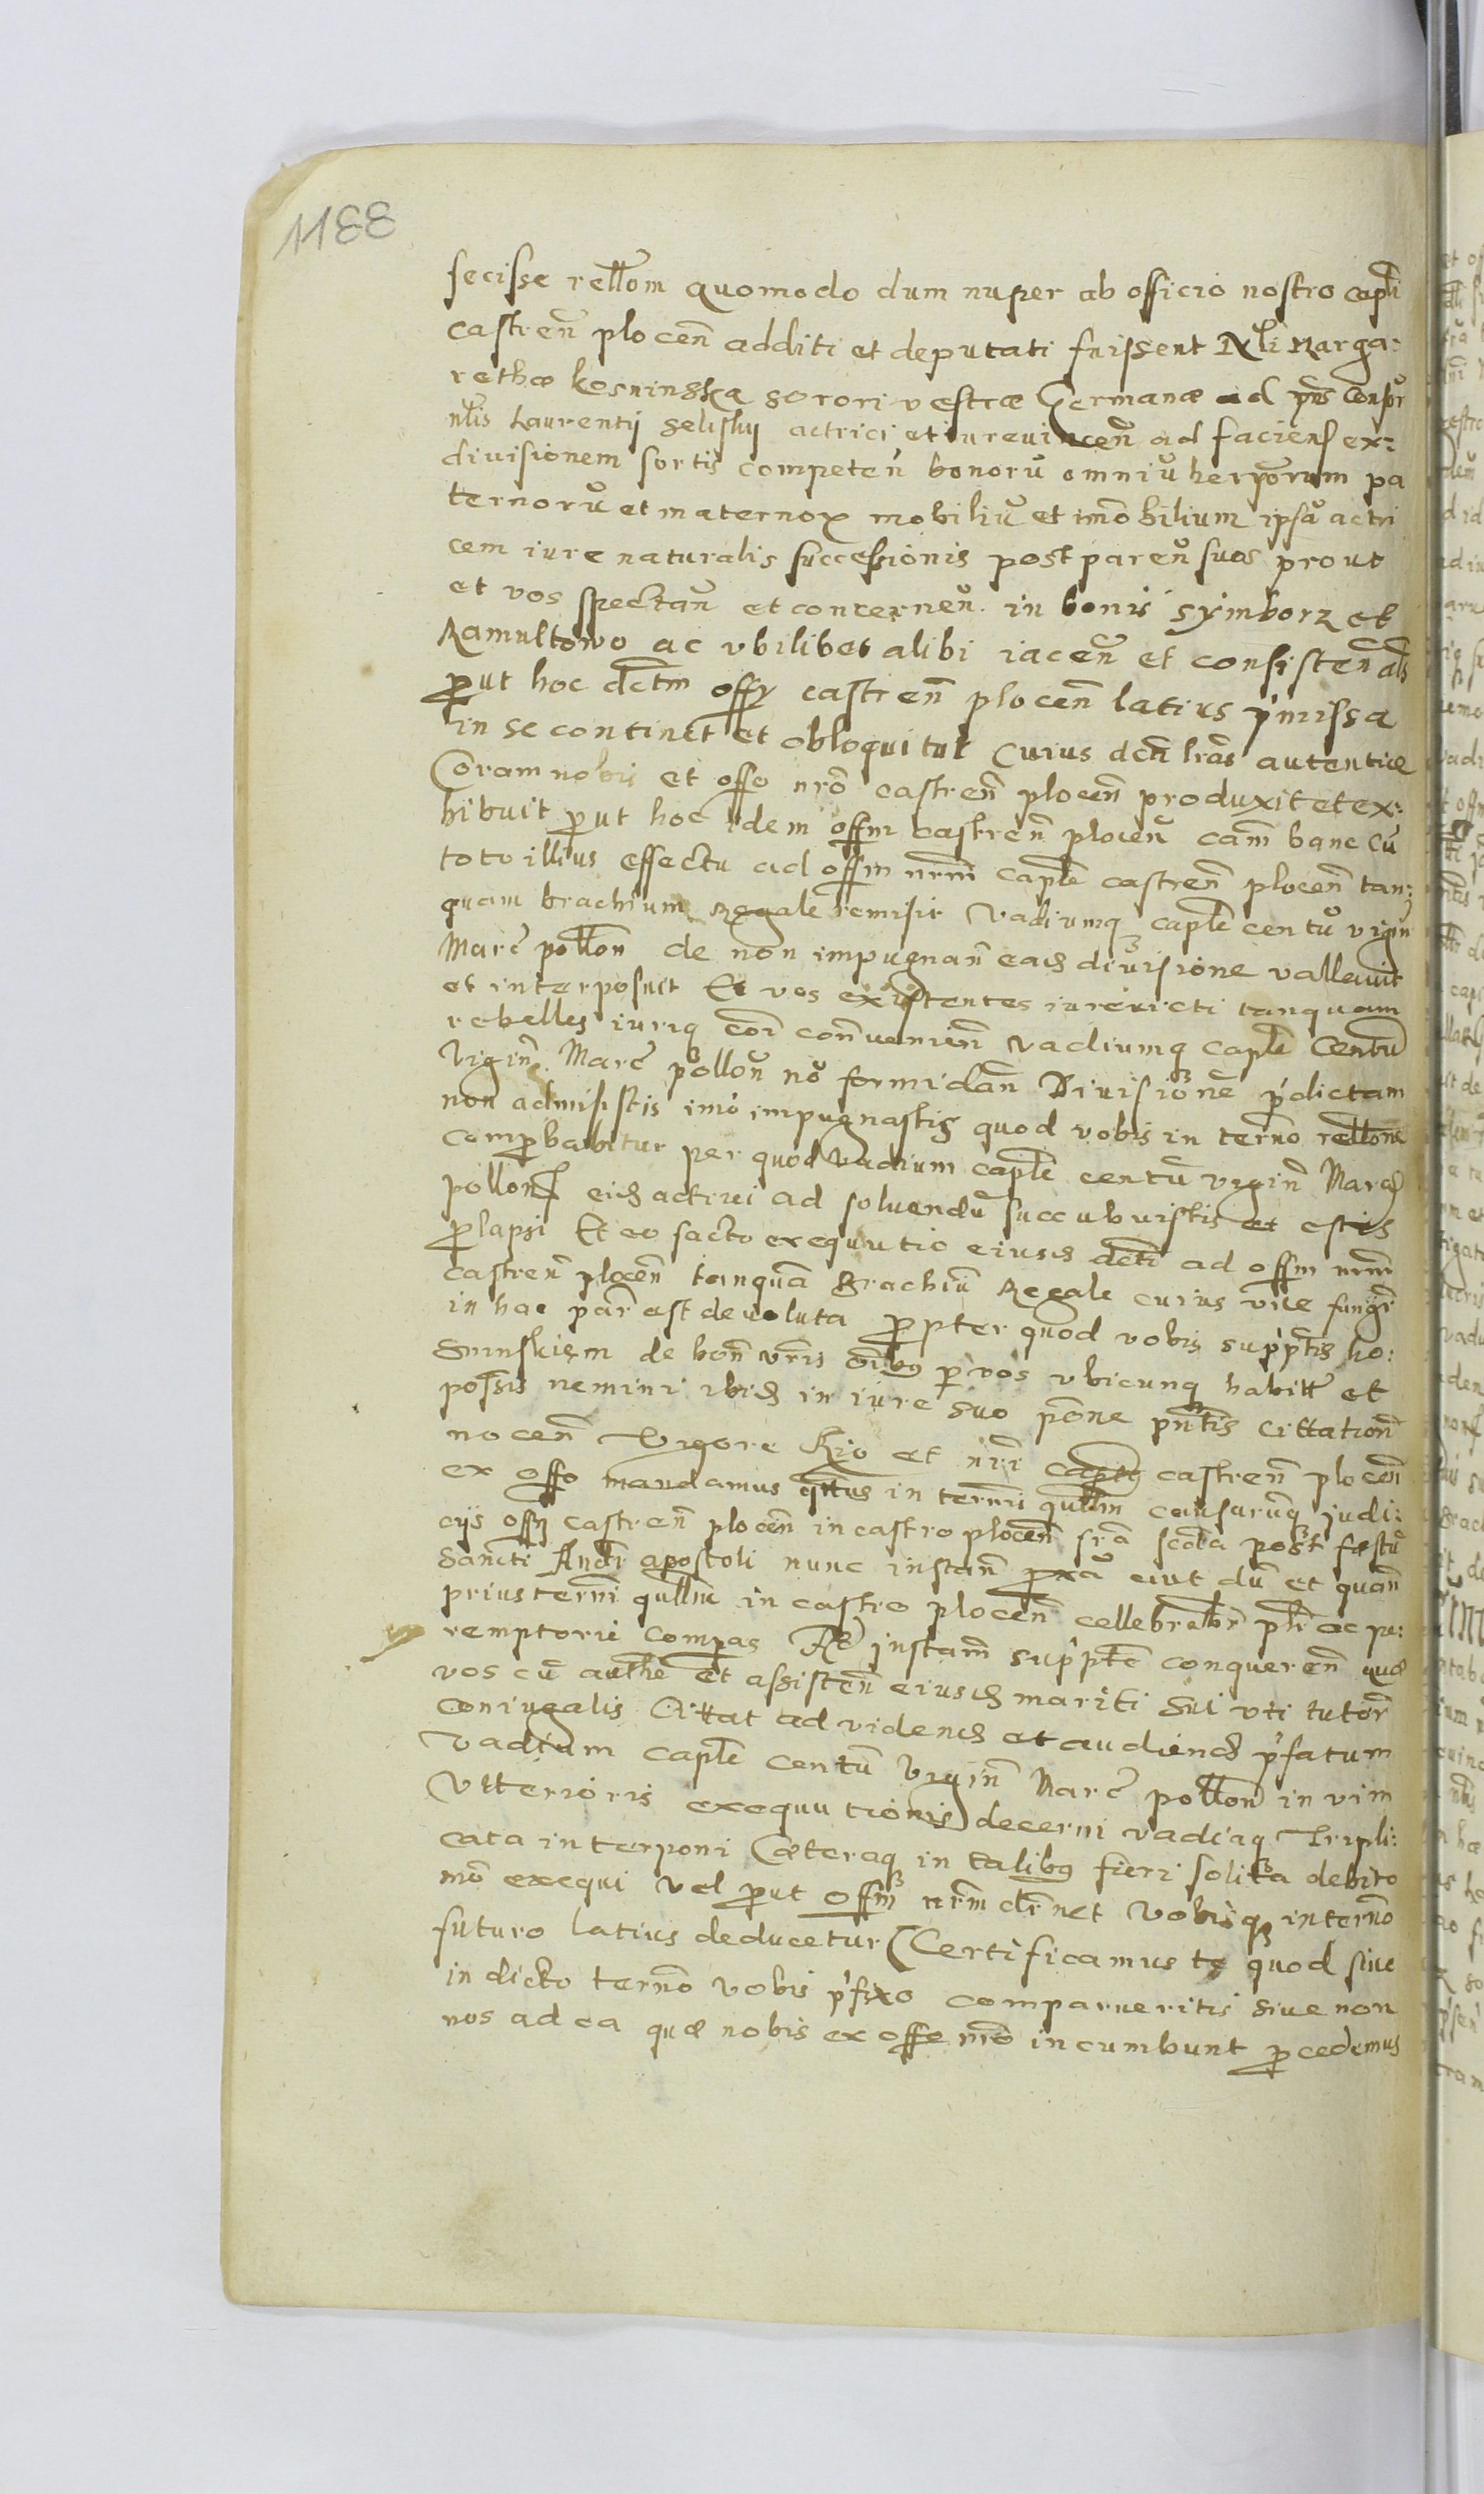 1188
fecisse rellom quomodo dum nuper ab officio nostro capli
castren plocen additi et deputati fuissent Nli Marga:
rethæ kosninska sorori vestræ Germanæ ad pns Consor
nlis Laurentij seliskij actrici et iurevincen ad faciens ex:
divisionem sortis competen bonorū omniū herporum pa
ternorū et maternor mobiliū et imobilium ipsā actri
cem iure naturalis successionis post paren suos prout
et vos spectan et concernen in bonis symborz et
Ramultowo ac ubilibet alibi iacen et consisten als
put hoc dctm offy castren plocen latius pmissa
in se continet et obloquitur Cuius dcti lras autentice
Coram nobis et offo nro castren plocen produxit et ex:
hibuit put hoc idem offm castren plocen cam hanc cū
toto illius effectu ad offm nrm caple castren plocen tan:
quam brachium Regale remisit Vadiumq caple centū vigin
Marc pollon de non impugnan eads divisione vallavit
et interposuit Et vos existentes iurevicti tanquam
rebelles iuriq coi convenien vadiumq caple Centū
Vigin Marc pollon nō formidan Divisionē pdictam
non admisistis imo impugnastis quod vobis in terno rellone
compbabitur per quod vadium caple centū vigin Marc
pollon eids actrici ad solvendū succubuistis et estis
plapsi Et eo facto exequutio eiusds dcti ad offm nrm
castren plocen tanquā Brachiū Regale cuius vice fungr
in hac par est devoluta ppter quod vobis supptis ho:
sninskiem de bon vris oibus p vos ubicunq habitt et
possis nemini ibids in iure suo pone pntis cittation
nocen Vigore Rio et nri captus castren plocen
ex offo mandamus qttus in termi qullm causarūq judi:
cijs offy castren plocen in castro plocen fra scda post festū
Sancti Andr apostoli nunc instan pxa eiut dū et quan
prius termi qullm in castro plocen cellebrabr plr ac pe:
remptorie compas Ad instam suppte conqueren quæ
vos cū authe et assisten eiusds mariti sui uti tutor
coniugalis Cittat ad videnđ et audiendđ pfatum
Vadium caple centū Vigin Marc pollon in vim
Ulterioris exequutionis decerni vadiaq Tripli:
cata interponi Cæteraq in talibus fieri solita debito
mo exequi vel put offm nrm dtnet Vobisq in terno
futuro latius deducetur Certificamus te quod sive
in dicto terno vobis pfixo comparueritis sive non
nos ad ea quæ nobis ex offo nro incumbunt pcedemus